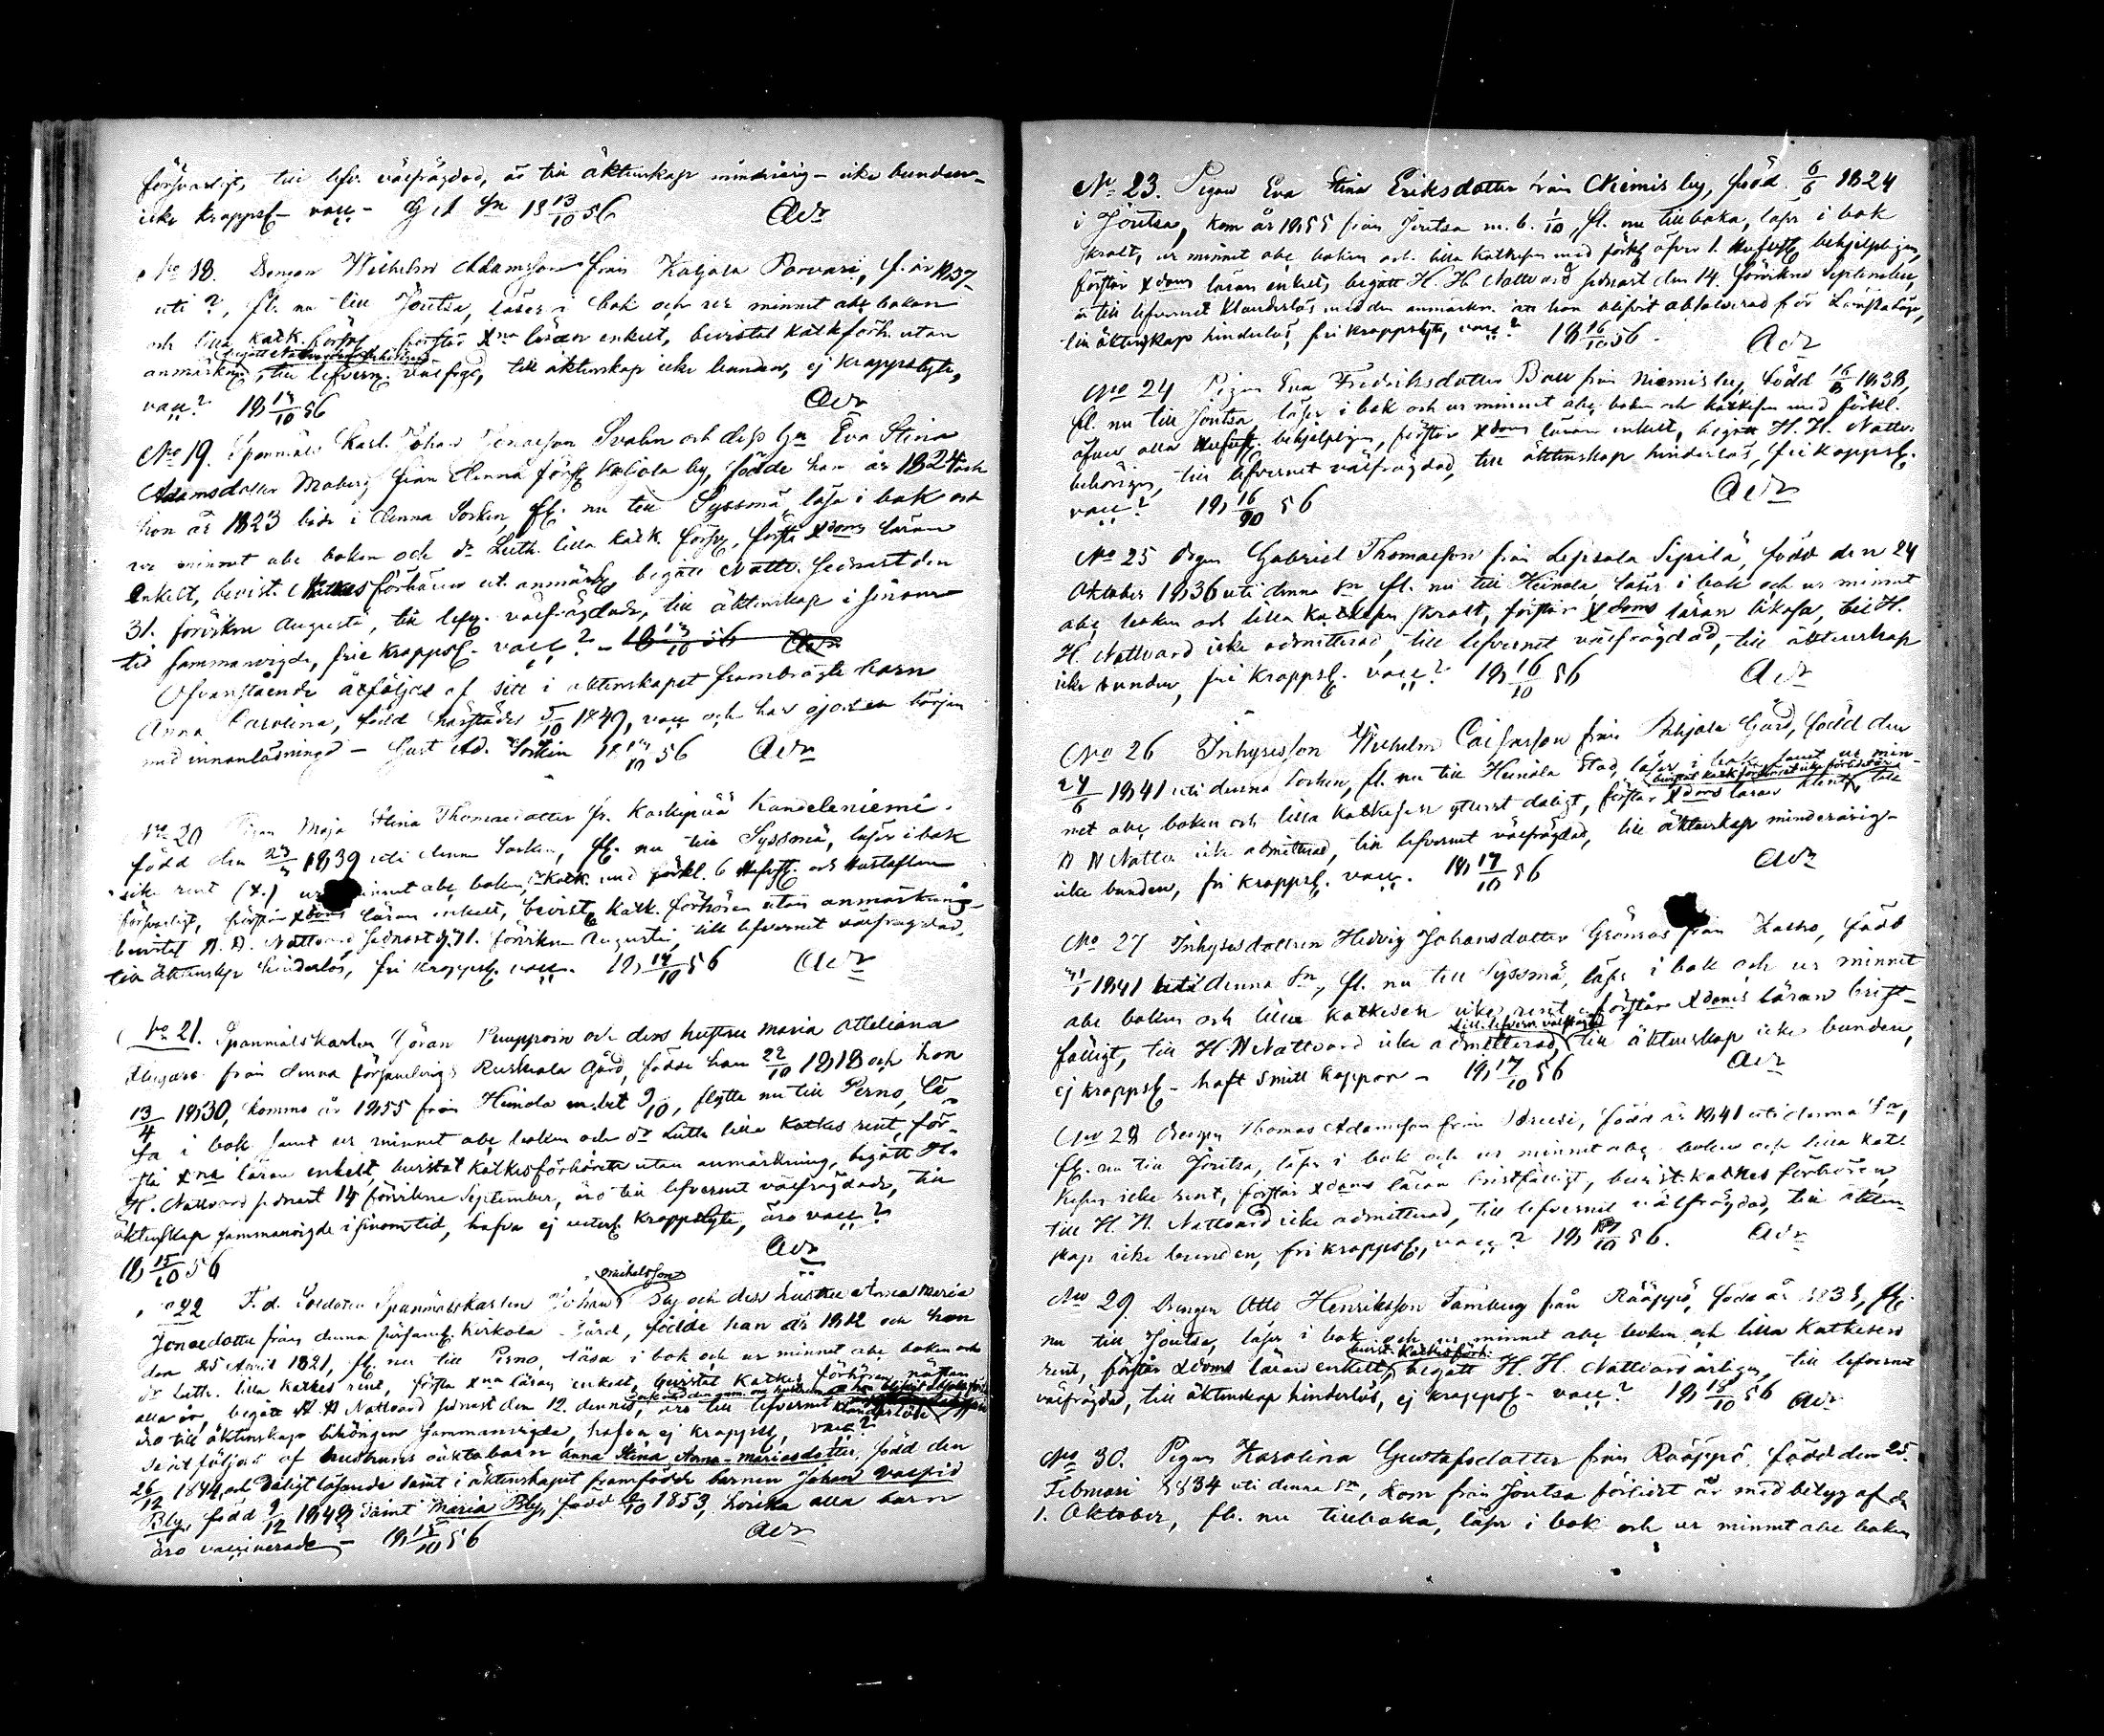 försvarligt, till lefv. välfrägdad, är till äktenskap minderårig – icke bunden –
icke kroppsl – vacc – G A Sn 18 13/10 56 Adr
No 18. Drengen Wilhelm Adamsson från Kaljala Porvari, f. år 1837
uti ?, fl. nu till Joutsa, läser i bok och ur minnet abc boken
och lilla katk. förstår xna läran enkelt, bevistat katk förh. utan
anmärkng, till lefvern. välfrgd, till äktenskap icke bunden, ej kroppslyte,
vacc? 18 13/10 56 Adr
No 19. Spanmåls Karl Johan Svahn och dess hu Eva Stina
Adamsdotter Moberg från denna förs Kaljola by, födde han år 1824 och
hon år 1823 både i denna Socken, fl. nu till Syssmä, läsa i bok och
ur minnet abc boken och Dr Luth. lilla katk. förstå xdoms läran
enkelt, bevist. Katkesförhören ut. anmärkg, begått Nattv. sednast den
31. förvikne Augusti, till lefv. välfrägdade, till äktenskap i sinom
tid sammanvigde, frie kroppsl. vacc? – 18 13/10 56 Adr
Ofvanstående åtföljes af sitt i äktenskapet frambragte barn
Anna Carolina, född härstädes 5/10 1849, vacc och har gjort en början
med innanläsning – Gust Ad. Socken 18 14/10 56 Adr
No 20 Pigan Maja Stina Thomaedotter fr. Koskipää Kandeleniemi
född den 23 1839 uti denna Socken, fl. nu till Syssmä, läser i bok
icke rent (x.) ur minnet abc boken, Katk. med förkl. 6 Hufst. och Hustaflan
försvarligt, förstår xdoms läran enkelt, bevist Katk. förhören utan anmärkning
bevistat H. H. Nattvard sednast d. 31. förvikne Augusti, till lefvernet välfrägdad,
till äktenskap hinderlös, fri kroppsl. vacc. 18 14/10 56 Adr
No 21. Spanmålskarlen Göran Pumppoin och dess hustru Maria Atteliana
från denna församlings Ruskiala Gård, födde han 22/10 1818 och hon
13/4 1830, kommo år 1855 från Heinola m. bet 9/10, flytta nu till Perno, lä-
sa i bok samt ur minnet abc boken och Dr Luth lilla Katkes rent, för-
stå xna läran enkelt, bevistat Katkesförhören utan anmärkning, begått H.
H. Nattvard sednast 14 förvikne September, äro till lefvernet välfrägdade, till
äktenskap sammanvigde i sinom tid, hafva ej kroppslyte, äro vacc?
18 15/10 56 Adr
No 22 F. d. Soldaten Spanmålskarlen Johan Michelsson Bly och dess hustru Anna Maria
Jonaedotter från denna församl. Gård, födde han år 1812 och hon
den 25 April 1821, fl. nu till Perno, läsa i bok och ur minnet abc boken och
Dr Luth. lilla Katkes rent, förstå xna läran enkelt, bevistat Katkes förhören nästan
alla år, begått H. H Nattvard sednast den 12. dennes, äro till lefvernet klanderlöse
äro till äktenskap behörigen sammanvigde, hafva ej kroppsl, vacc?
De åtföljas af hustruns oäkta barn Anna Stina Anna-Mariasdotter, född den
26/12 1844, och dåligt läsande samt i äktenskapet framfödde barnen Johan
Bly, född 9/12 1849 samt Maria Bly, född 1853, hvilka alla barn
äro vaccinerade – 18 15/10 56 Adr
No 23. Pigan Eva Stina Eriksdotter från Niemis by, född 6/6 1824
i Joutsa, kom år 1855 från Joutsa m. b. 1/10, fl. nu tillbaka, läser i bok
skralt, ur minnet abc boken och lilla katkesen med förkl öfver 1. Hufvst behjelpligen,
förstår xdoms läran enkelt, begått H. H. Nattvard sednast den 14. förvikne September,
är till lefvernet klanderlös med den anmärkn. att hon blifvit absolverad för Lönskaläge,
till äktenskap hinderlös, fri kroppslyte, vacc? 18 16/10 56. Adr
No 24 Pigan Eva Fredriksdotter Bau från Niemis by, född 16/8 1838,
fl. nu till Joutsa, läser i bok och ur minnet abc boken och katkesen med förkl.
öfver alla Hufvst. behjelpligen, förstår xdoms läran enkelt, begått H. H. Nattv.
behörigen, till lefvernet välfrägdad, till äktenskap hinderlös, fri kroppsl.
vacc? 18 16/10 56 Adr
No 25 Drgen Gabriel Thomaesson från Lepsala Sipilä, född den 24
Oktober 1836 uti denna Sn fl. nu till Heinola, läser i bok och ur minnet
abc boken och lilla Katkesen skralt, förstår xdoms läran likaså, till H.
H. Nattvard icke admitterad, till lefvernet välfrägdad, till äktenskap
icke bunden, fri kroppsl. vacc? 18 16/10 56 Adr
No 26 Inhysesson Wilhelm från Pohjola Gård, född den
24/6 1841 uti denna Socken, fl. nu till Heinola Stad, läser i bok samt ur min-
net abc boken och lilla Katkesen ytterst dåligt, förstår xdoms läran klent, till
H H Nattv icke admitterad, till lefvernet välfrägdad, till äktenskap minderårig –
icke bunden, fri kroppsl. vacc. 18 17/10 56 Adr
No 27 Inhysesdottren Hedvig Johansdotter Grönroos från Kasko, född
1841 uti denna Sn, fl. nu till Syssmä, läser i bok och ur minnet
abc boken och lilla Katkesen icke rent, förstår xdoms läran brist-
fälligt, till H. H Nattvard icke admitterad, till lefvern. välfrägd till äktenskap icke bunden,
ej kroppsl – haft Smitt Koppor – 18 17/10 56 Adr
No 28 Drengen Thomas Adamsson från född år 1841 uti denna Sn,
fl. nu till Joutsa, läser i bok och ur minnet abc boken och lilla Katk
kesen icke rent, förstår xdoms läran bristfälligt, bevist. katkes förhören,
till H. H. Nattvard icke admitterad, till lefvernet välfrägdad, till äkten-
skap icke bunden, fri kroppsl, vacc? 18 17/10 56. Adr
No 29 Drengen Otto Henriksson Tamberg från Rääppö, född år 1838, fl.
nu till Joutsa, läser i bok och ur minnet abc boken och lilla Katkesen
rent, förstår xdoms läran enkelt, bevist. Katkesförh. begått H. H. Nattvard årligen, till lefvernet
välfrägdad, till äktenskap hinderlös, ej kroppsl – vacc? 18 18/10 56 Adr
No 30. Pigan Karolina Gustafsdotter från Rääppö, född den 25.
Februari 1834 uti denna Sn, kom från Joutsa förlidet år med betyg af d.
1. Oktober, fl. nu tillbaka, läser i bok och ur minnet abc boken